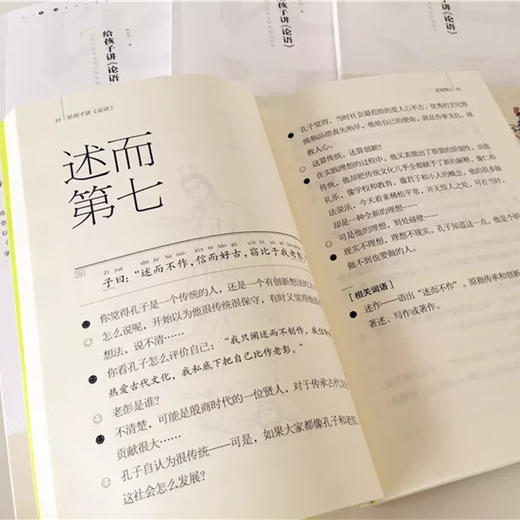 给孩子讲《论语》
给孩子讲《论语》
给孩子讲《论语》
给孩子讲《论语》
述而
第七
zǐ yuē
子曰："述而不作，信而好古，窃比于我老彭
你觉得孔子是一个传统的人，还是一个有创新想法的人
怎么说呢，开始以为他很传统很保守，有时又觉得他
想法，说不清……
你看孔子怎么评价自己："我只阐述而不创作，我信
热爱古代文化，我私底下把自己比作老彭。"
老彭是谁？
不清楚，可能是殷商时代的一位贤人，对于传承古代文
贡献很大……
孔子自认为很传统——可是，如果大家都像孔子和老彭
这社会怎么发展？
孔子觉得，当时社会最危险的是人心不古，优秀的文化传
统和品德丧失殆尽，他给自己的使命，就是传承文化，拯
救人心。
这算传统，还算创新？
在实践理想的过程中，他又表现出了极强的原创性。在
传统，他却把传统文化几乎全部赋予了新的解释，像仁和
礼乐，像学校和教育，像君子和小人的概念，他的很多
想法和做法，今天看来稀松平常，并无惊人之处，可在当时，
却是一种全新的理想……
可是他的理想，到处碰壁……
现实不理想，理想不现实，孔子知道这一点，他是个明
做不到也要做的人。
[相关词语]
述作——语出"述而不作"。原指传承和创新
著述、写作或著作。